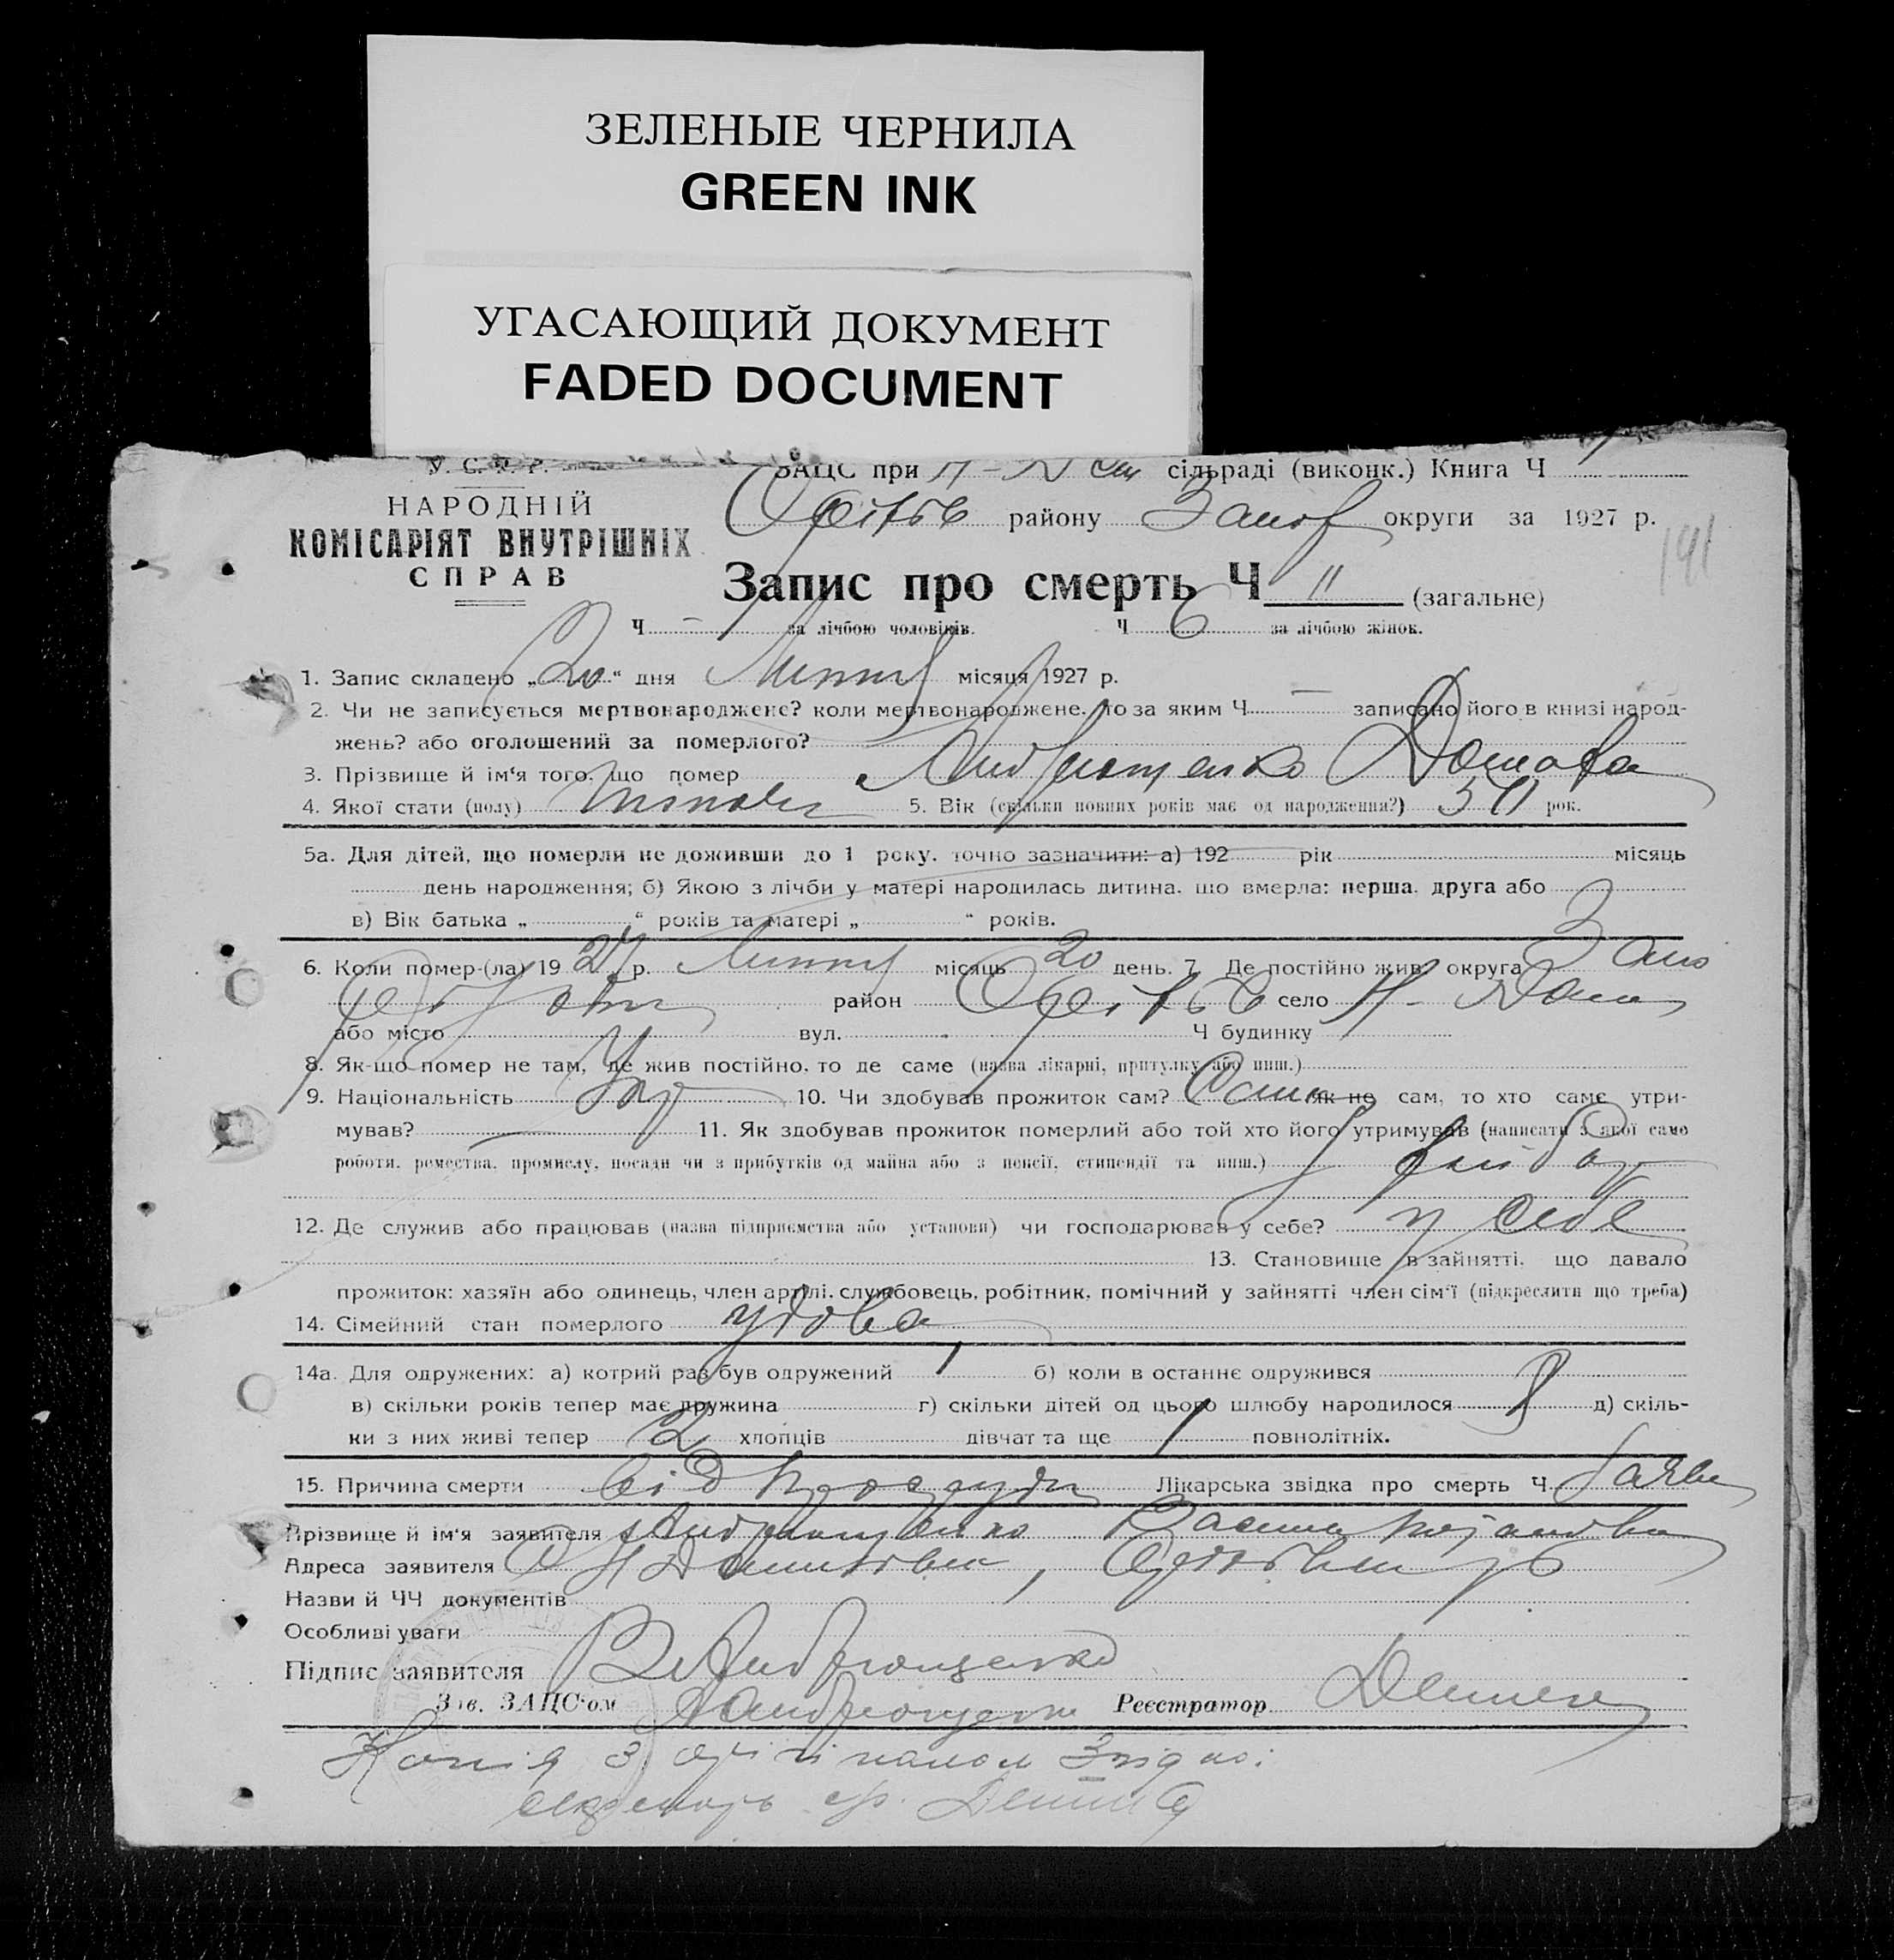 ЗЕЛЕНЫЕ ЧЕРНИЛА
GREEN INK
УГАСАЮЩИЙ ДОКУМЕНТ
FADED DOCUMENT
У. С. Р. Р.
ЗАЦС при сільраді (виконк.) Книга Ч
НАРОДНІЙ
КОМІСАРІЯТ ВНУТРІШНІХ
СПРАВ
району Запор округи за 1927 р.
191
Запис про смерть Ч 11 (загальне)
Ч — за лічбою чоловіків. Ч 6 за лічбою жінок.
1. Запис складено „20“ дня Липня місяця 1927 р.
2. Чи не записується мертвонароджене? коли мертвонароджене, то за яким Ч — записано його в книзі народ-
жень? або оголошений за померлого?
3. Прізвище й ім‘я того, що помер Андрющенко Домаха
4. Якої стати (полу) жіночої 5. Вік (скільки повних років має од народження?) рок.
5а. Для дітей, що померли не доживши до 1 року, точно зазначити: а) 192 рік місяць
день народження; б) Якою з лічби у матері народилась дитина, що вмерла: перша, друга або
в) Вік батька „ “ років та матері „ “ років.
6. Коли помер-(ла) 1927 р. Липня місяць 20 день. 7. Де постійно жив: округа Запо
район село
або місто вул. Ч будинку
8. Як-що помер не там, де жив постійно, то де саме (назва лікарні, притулку або инш.)
9. Національність Укр 10. Чи здобував прожиток сам? Сама Як не сам, то хто саме утри-
мував? 11. Як здобував прожиток померлий або той хто його утримував (написати з якої само
роботи, ремества, промислу, посади чи з прибутків од майна або з пенсії, стипендії та инш.)
12. Де служив або працював (назва підприємства або установи) чи господарював у себе? у себе
13. Становище в зайнятті, що давало
прожиток: хазяїн або одинець, член артілі, службовець, робітник, помічний у зайнятті член сім‘ї (підкреслити що треба)
14. Сімейний стан померлого удова
14а. Для одружених: а) котрий раз був одружений 1 б) коли в останнє одружився
в) скільки років тепер має дружина г) скільки дітей од цього шлюбу народилося 8 д) скіль-
ки з них живі тепер 2 хлопців дівчат та ще 1 повнолітніх.
15. Причина смерти від простуди Лікарська звідка про смерть Ч. Заява
Прізвище й ім‘я заявителя Андрющенко
Адреса заявителя
Назви й ЧЧ документів
Особливі уваги
Підпис заявителя В Андрющенко
Зав. ЗАЦС‘ом Андрющенко Реєстратор
Копія з орігіналом Згідно:
секретарь с/р.